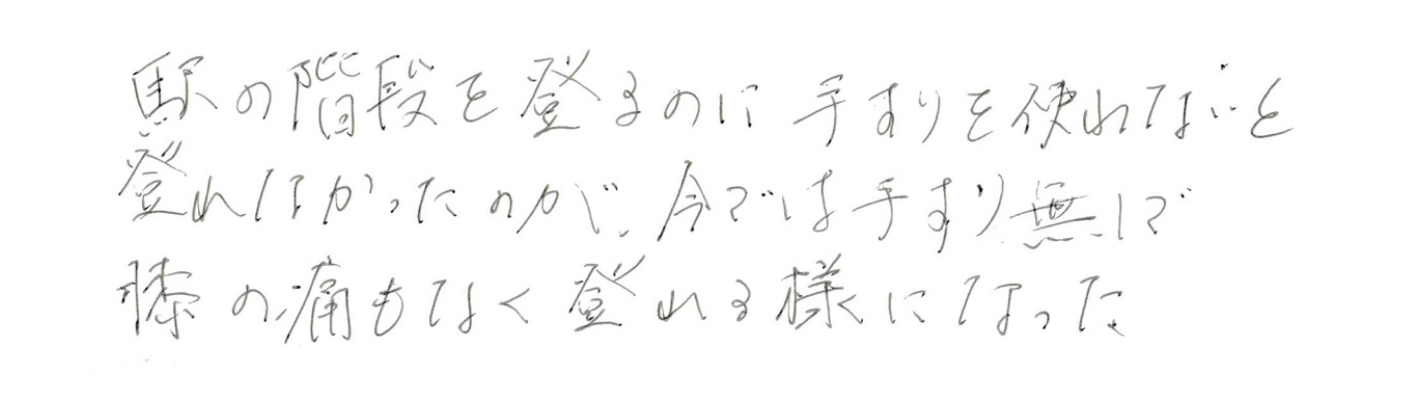 駅の階段を登るのに手すりを使れないと
登れなかったのが、今では手すり無しで
膝の痛もなく登れる様になった